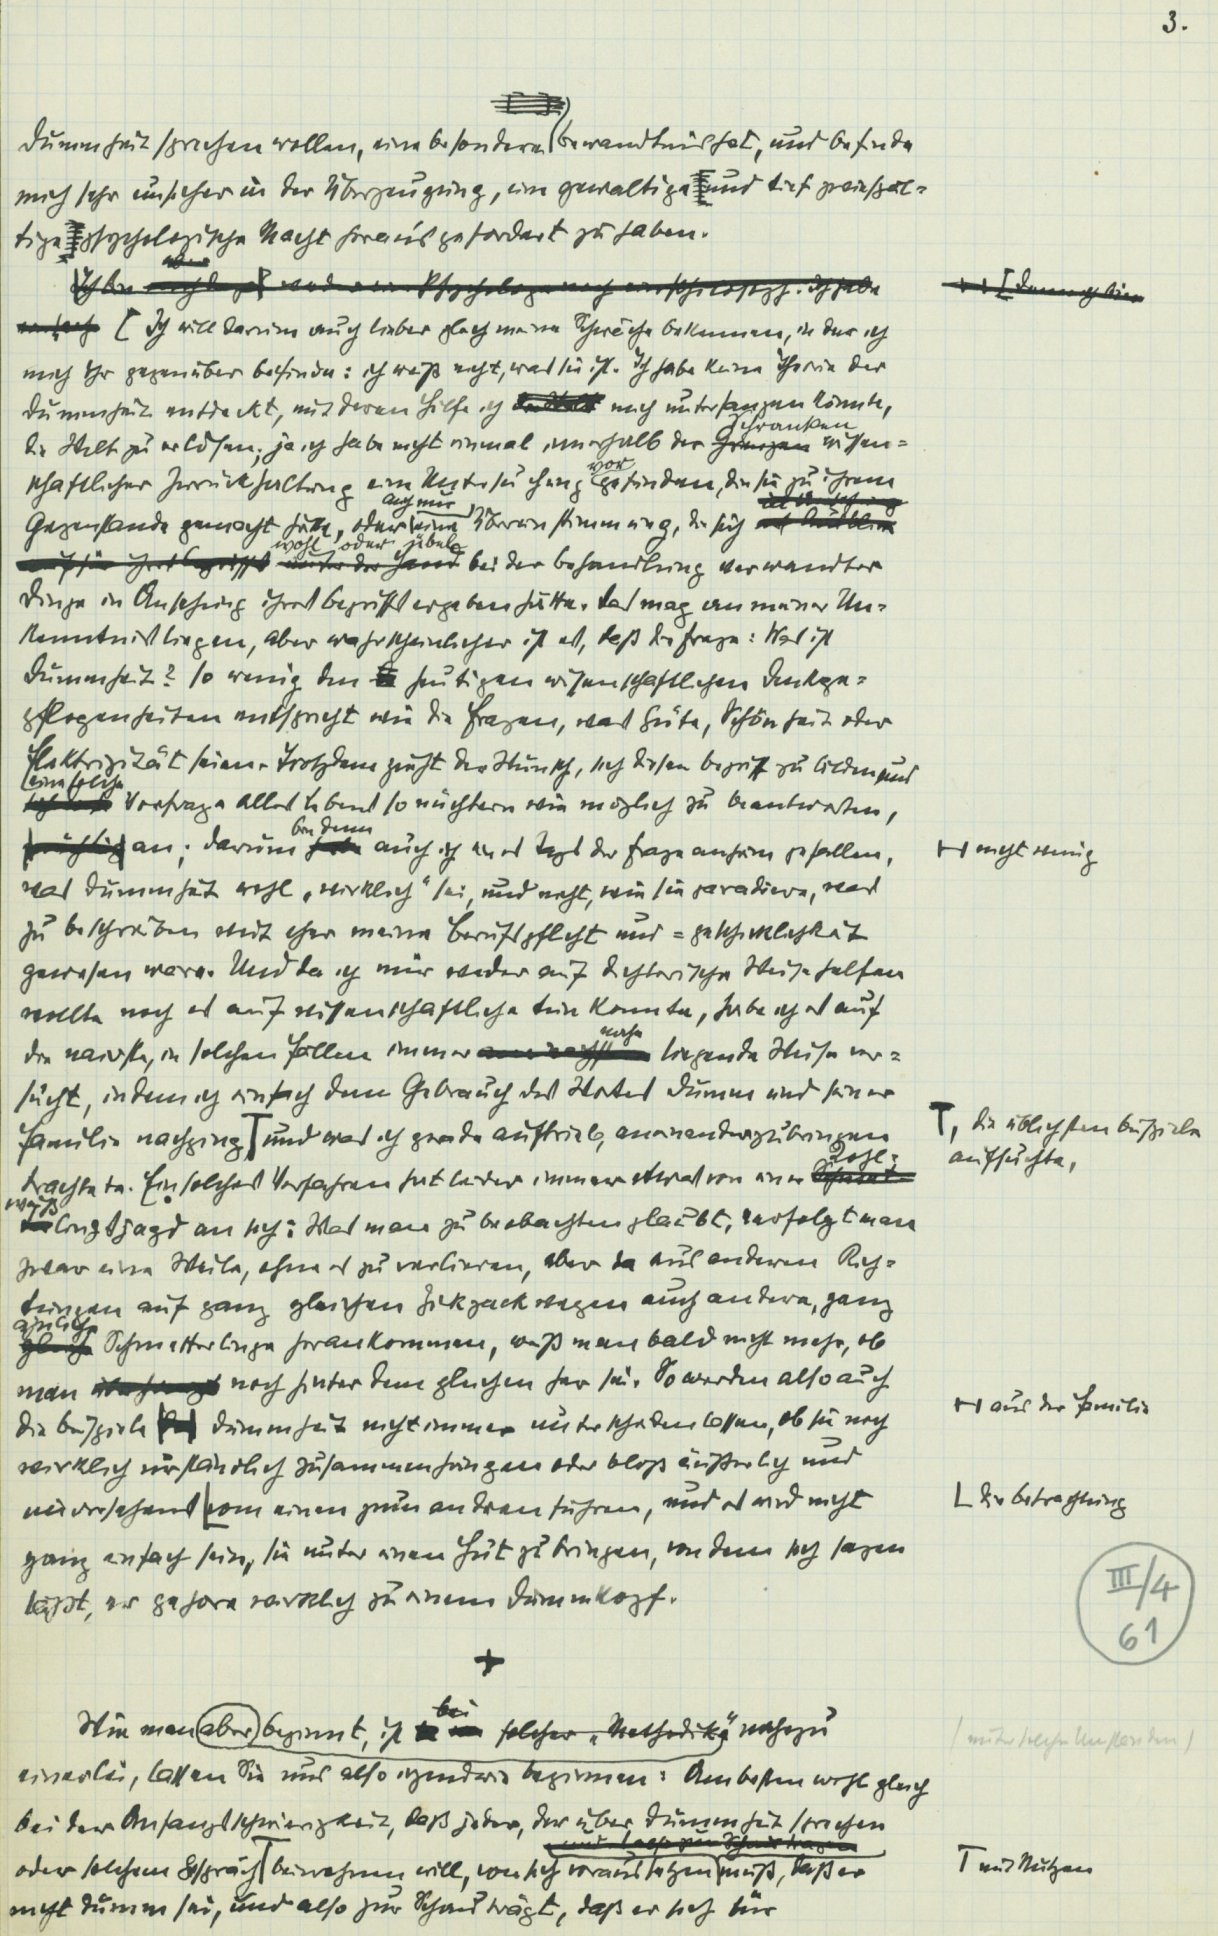 3.
Dummheit sprechen wollen, eine besondere Bewandtnis hat, und befinde
mich sehr unsicher in der Überzeugung, eine gewaltige und tief zwiespäl=
tige psychologische Macht herausgefordert zu haben.
Ich bin weder ein Psychologe noch ein Philosoph. Ich habe
[Ich will darum auch lieber gleich meine Schwäche bekennen, in der ich
mich ihr gegenüber befinde: ich weiß nicht, was sie ist. Ich habe keine Theorie der
Dummheit entdeckt, mit deren Hilfe ich mich unterfangen könnte,
Schranken
die Welt zu erlösen; ja ich habe nicht einmal innerhalb der Grenzen wissen=
vor
schaftlicher Zurückhaltung eine Untersuchung gefunden, die sie zu ihrem
auch nur
Gegenstande gemacht hätte, oder eine Übereinstimmung, die sich
wohl oder übel
unter der Hand bei der Behandlung verwandter
Dinge in Ansehung ihres Begriffs ergeben hätte. Das mag an meiner Un=
kenntnis liegen, aber wahrscheinlicher ist es, daß die Frage: Was ist
Dummheit? so wenig den heutigen wissenschaftlichen Denkge=
pflogenheiten entspricht wie die Fragen, was Güte, Schönheit oder
Elektrizität seien. Trotzdem zieht der Wunsch, sich diesen Begriff zu bilden und
eine solche
Vorfrage alles Lebens so nüchtern wie möglich zu beantworten,
bin denn
an; darum auch ich eines Tags der Frage anheim gefallen, ⊢⊣ nicht wenig
was Dummheit wohl „wirklich“ sei, und nicht, wie sie paradiere, was
zu beschreiben weit eher meine Berufspflicht und =geschicklichkeit
gewesen wäre. Und da ich mir weder auf dichterische Weise helfen
wollte noch es auf wissenschaftliche tun konnte, habe ich es auf
nahe
die naivste, in solchen Fällen immer liegende Weise ver=
sucht, indem ich einfach dem Gebrauch des Wortes dumm und seiner
Familie nachging T und was ich gerade aufschrieb, aneinanderzubringen T, die üblichsten Beispiele
aufsuchte,
Kohl=
trachtete. Ein solches Verfahren hat leider immer etwas von einer
weiß
lingsjagd an sich: Was man zu beobachten glaubt, verfolgt man
zwar eine Weile, ohne es zu verlieren, aber da aus anderen Rich=
tungen auf ganz gleichen Zickzackwegen auch andere, ganz
ähnliche
gleiche Schmetterlinge herankommen, weiß man bald nicht mehr, ob
man noch hinter dem gleichen her sei. So werden also auch
die Beispiele der Dummheit nicht immer unterscheiden lassen, ob sie noch ⊢⊣ aus der Familie
wirklich ursächlich zusammenhängen oder bloß äußerlich und
unversehens L vom einen zum andren führen, und es wird nicht L die Betrachtung
ganz einfach sein, sie unter einen Hut zu bringen, von dem sich sagen
läßt, er gehöre wirklich zu einem Dummkopf.
III/4
61
+
bei
Wie man aber beginnt, ist solcher „Methodik“ nahezu (unter solchen Umständen)
einerlei, lassen Sie uns also irgendwie beginnen: Am besten wohl gleich
bei der Anfangsschwierigkeit, daß jeder, der über Dummheit sprechen
oder solchem Gespräch T beiwohnen will, von sich voraussetzen muß, daß er T mit Nutzen
nicht dumm sei, und also zur Schau trägt, daß er sich für